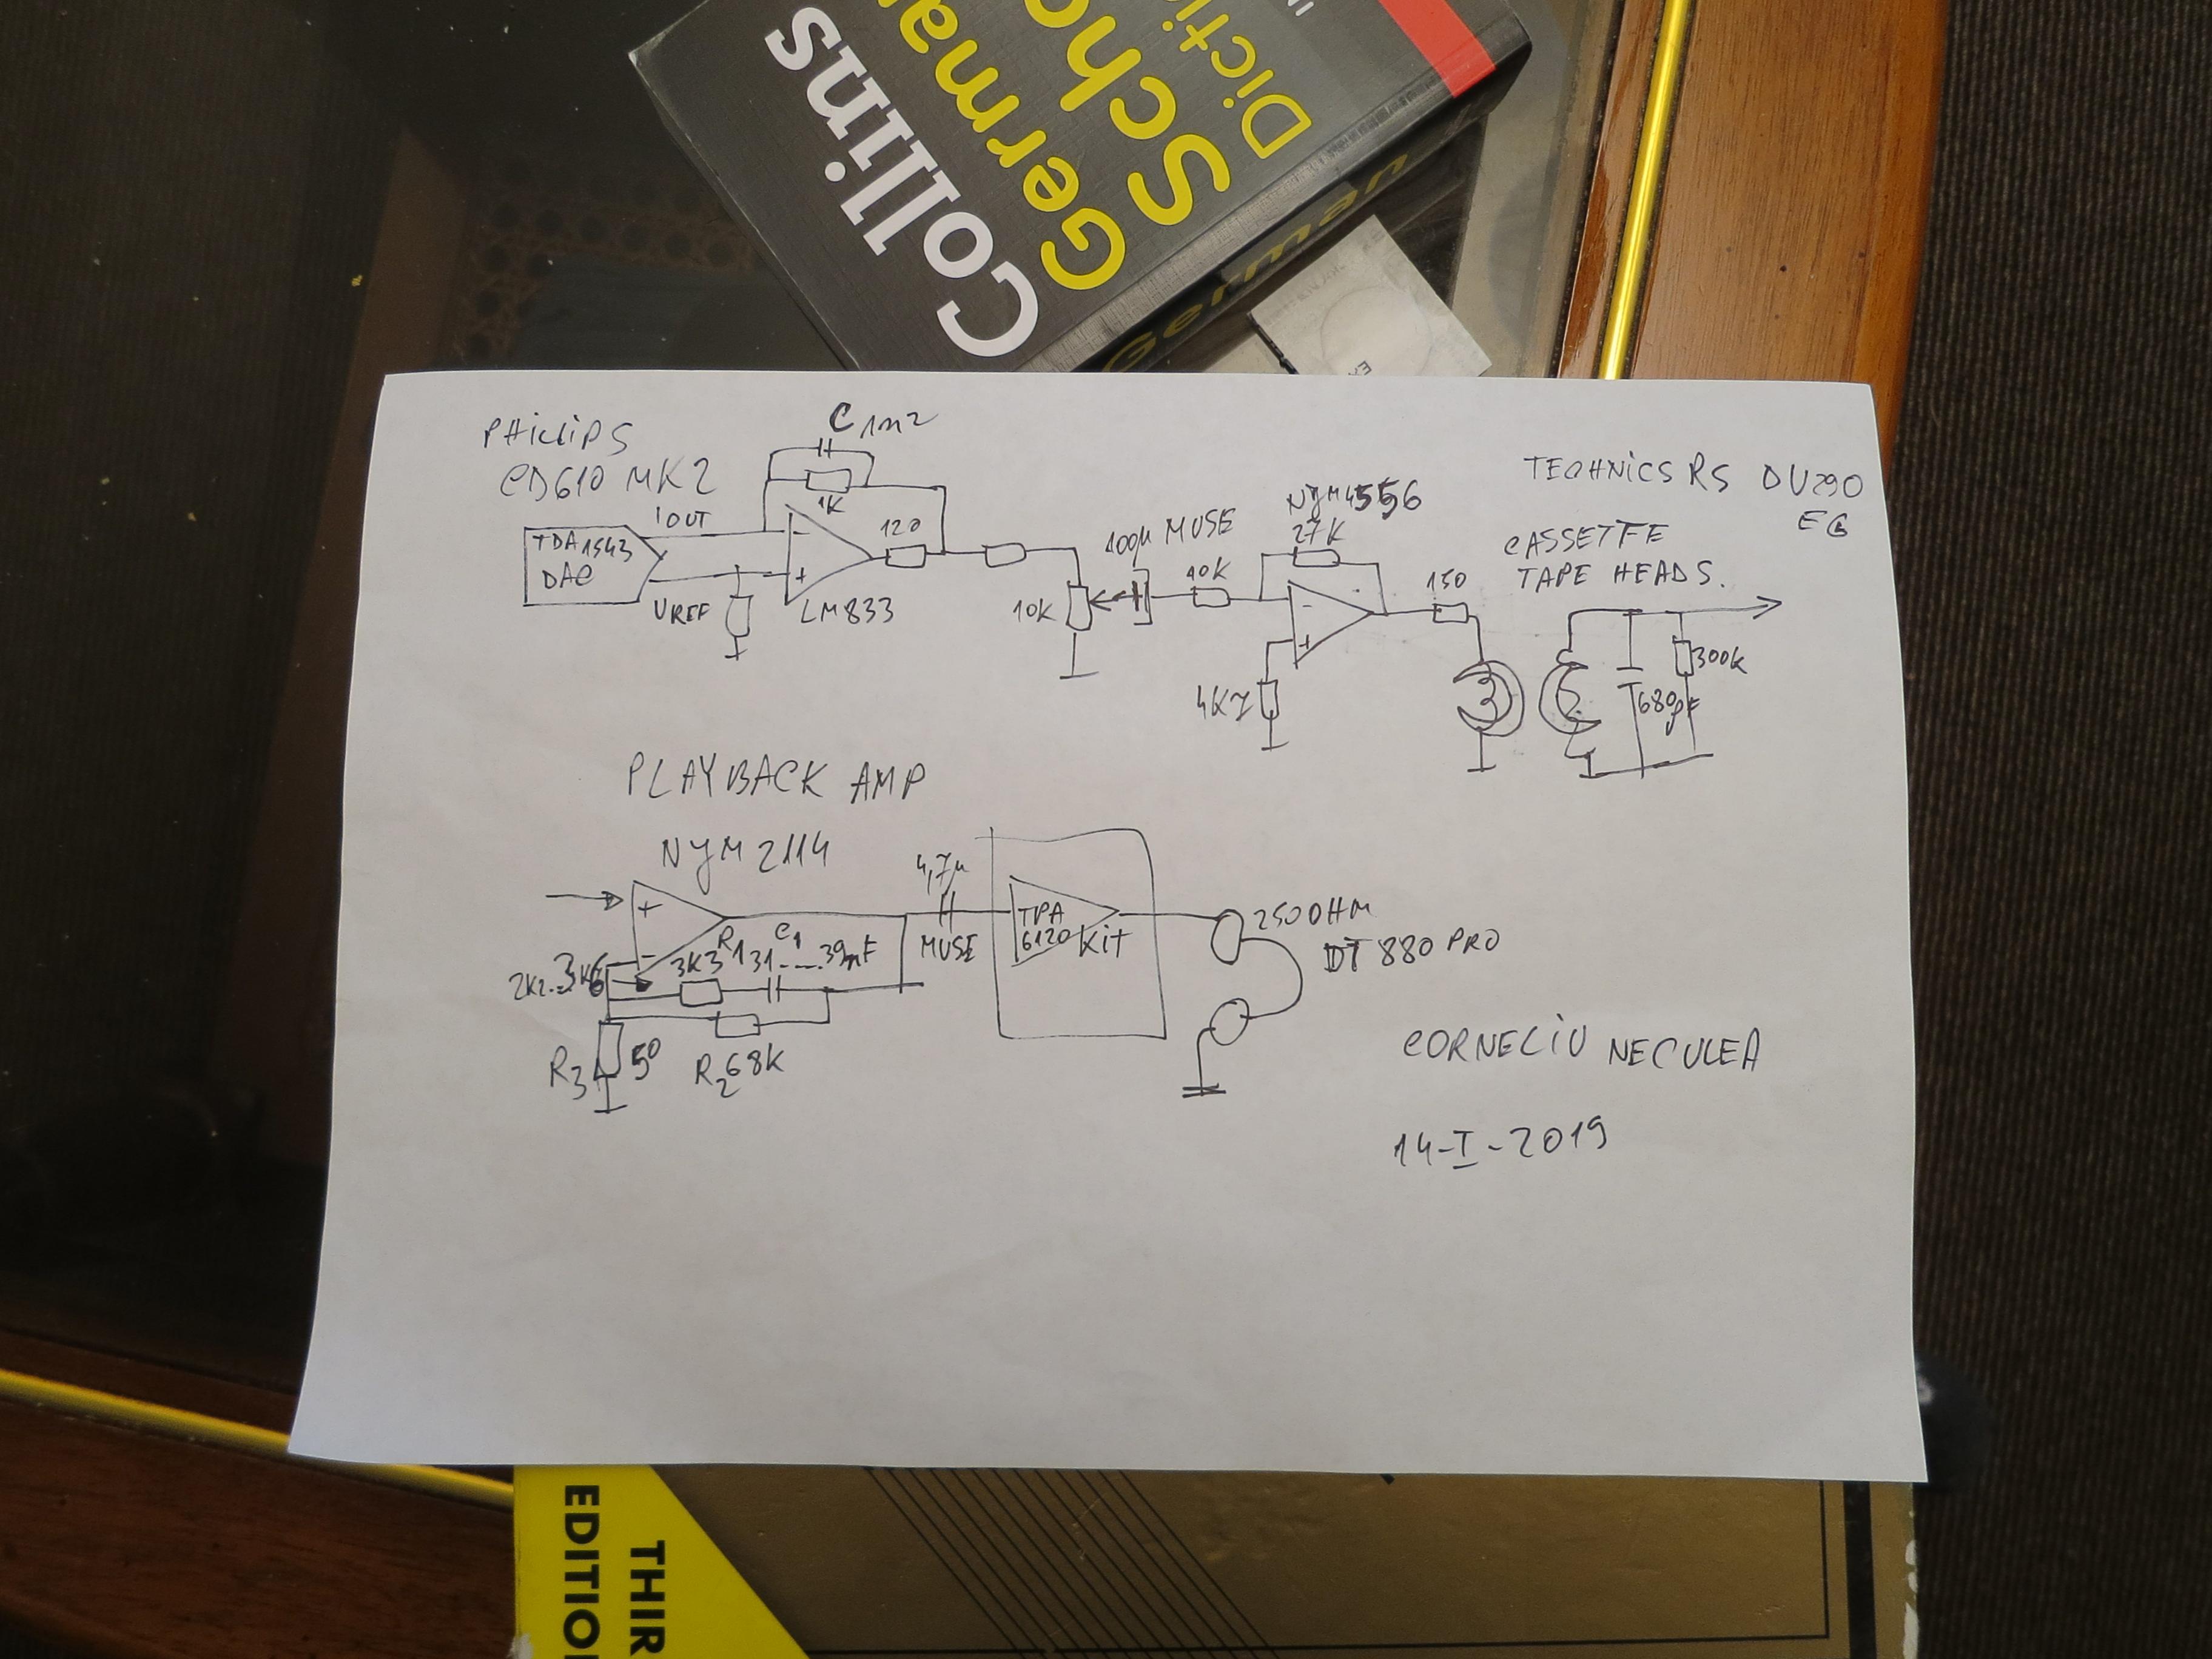 Collins
German
Scho
Dicti
German
PHILIPS
CD610 MK2
C 1n2
1K
IOUT
TDA1543
DAC
VREF
-
+
LM833
120
10K
100µ MUSE
10K
NJM4556
27K
-
+
4K7
150
TECHNICS RS DV290
EG
CASSETTE
TAPE HEADS.
300K
680pF
PLAYBACK AMP
NJM 2114
+
-
2K2..3K6
3K3 R1
C1
31....39nF
R2 68K
R3 50
4,7µ
MUSE
TPA
6120 Kit
250OHM
DT 880 PRO
CORNELIU NECULEA
14-I-2019
THIR
EDITIO